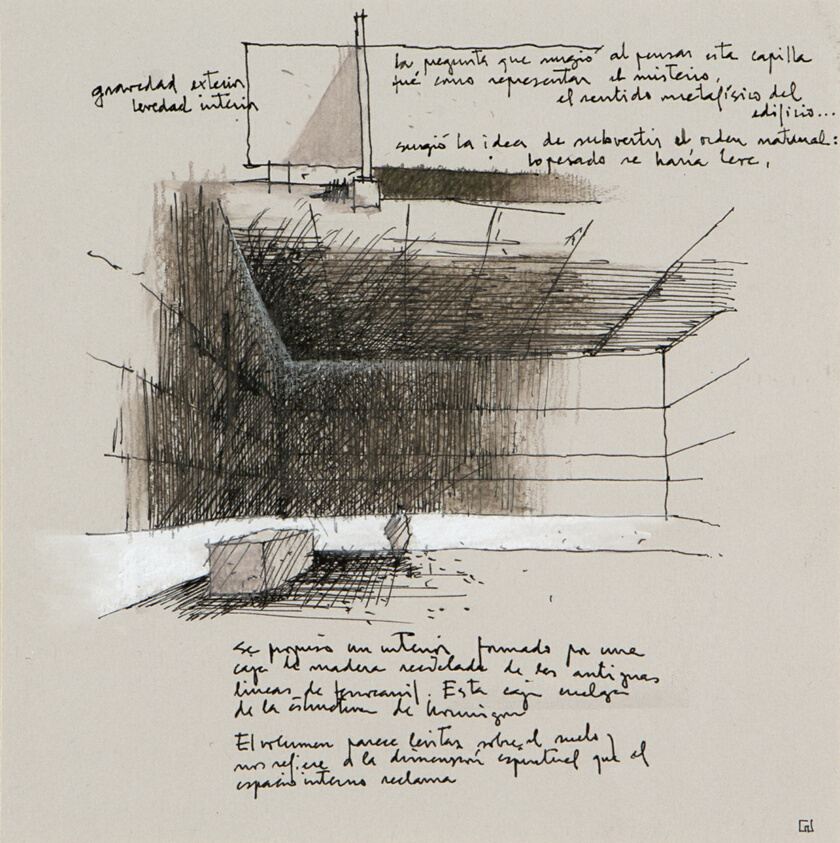 gravedad exterior
levedad interior
la pregunta que surgió al pensar esta capilla
fué como representar el misterio,
el sentido metafísico del
edificio...
surgió la idea de subvertir el orden natural:
lo pesado se haría leve,
se propuso un interior formado por una
caja de madera reciclada de las antiguas
lineas de ferrocarril. Esta caja cuelga
de la estructura de hormigon
El volumen parece levitar sobre el suelo y
nos refiere a la dimensión espiritual que el
espacio interno reclama